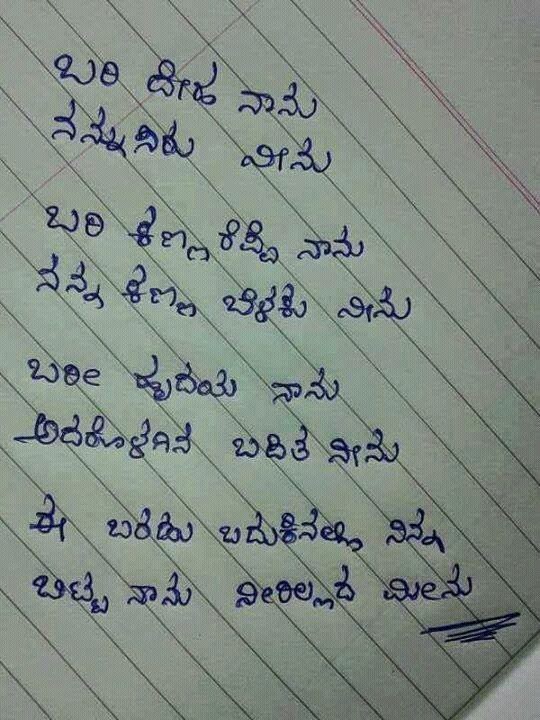 ಬರಿ ದೇಹ ನಾನು
ನನ್ನುಸಿರು ನೀನು
ಬರಿ ಕಣ್ಣ ರೆಪ್ಪೆ ನಾನು
ನನ್ನ ಕಣ್ಣ ಬೆಳಕು ನೀನು
ಬರೀ ಹೃದಯ ನಾನು
ಅದರೊಳಗಿನ ಬಡಿತ ನೀನು
ಈ ಬರಡು ಬದುಕಿನಲ್ಲಿ ನಿನ್ನ
ಬಿಟ್ಟ ನಾನು ನೀರಿಲ್ಲದ ಮೀನು